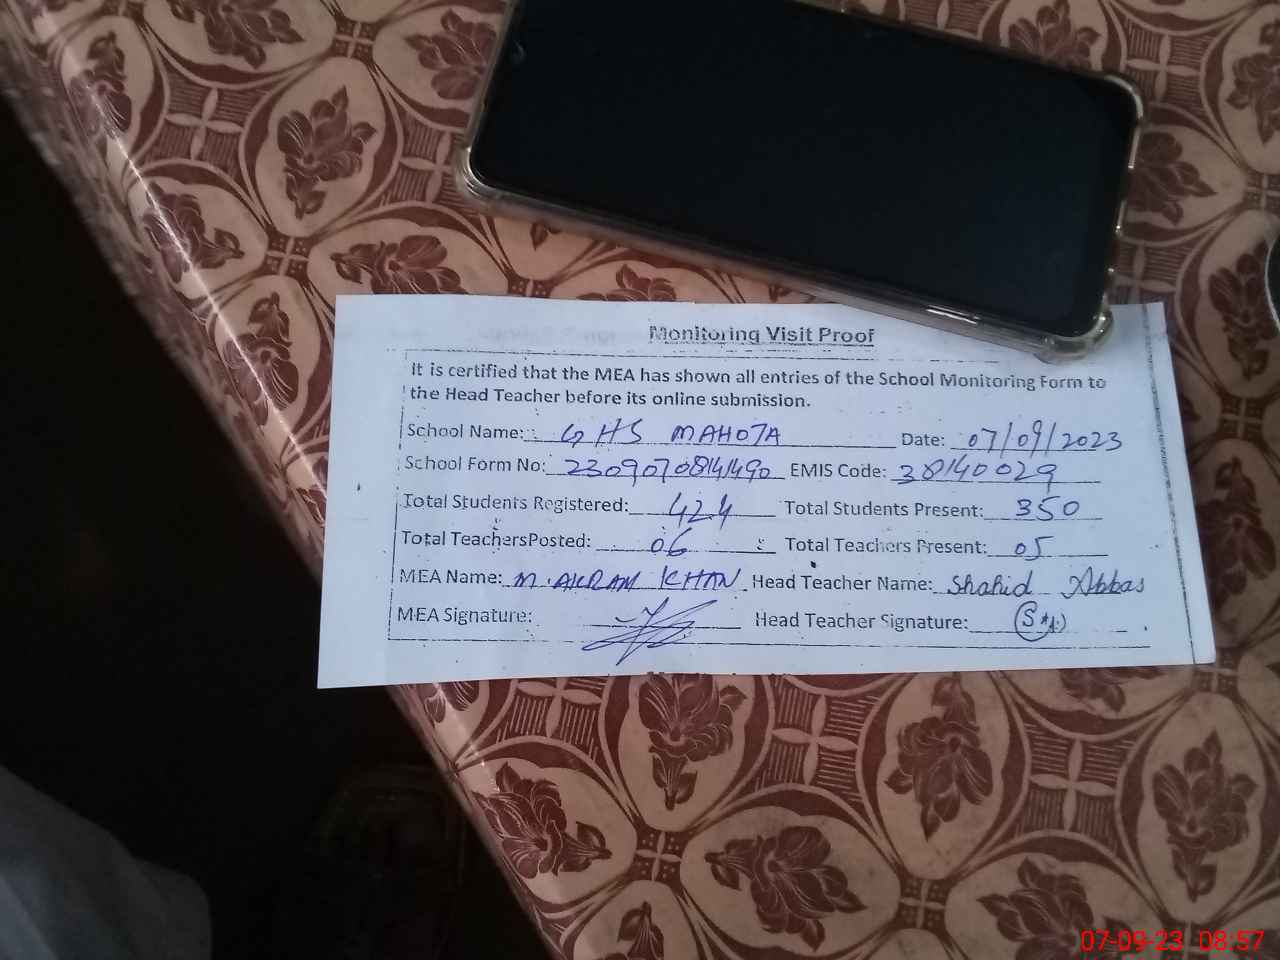 Monitoring Visit Proof
It is certified that the MEA has shown all entries of the School Monitoring Form to
the Head Teacher before its online submission.
School Name: GHS MAHOTA Date: 07/09/2023
School Form No: 2309070841490 EMIS Code: 38140029
Total Students Registered: 424 Total Students Present: 350
Total TeachersPosted: 06 Total Teachers Present: 05
MEA Name: M. AKRAM KHAN Head Teacher Name: Shahid Abbas
MEA Signature: Head Teacher Signature:
07-09-23 08:57